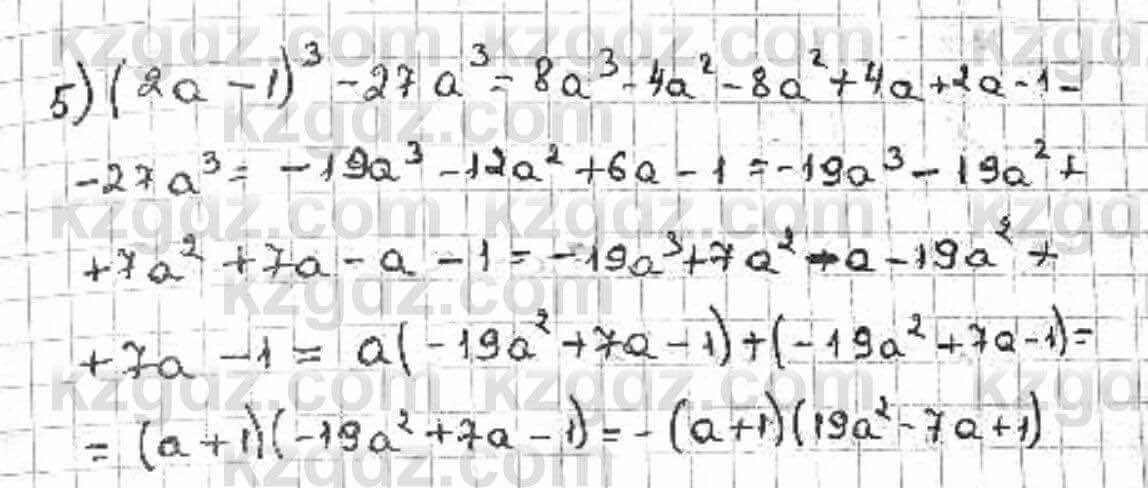 5) (2a - 1)³ - 27a³ = 8a³ - 4a² - 8a² + 4a + 2a - 1 -
- 27a³ = -19a³ - 12a² + 6a - 1 = -19a³ - 19a² +
+ 7a² + 7a - a - 1 = -19a³ + 7a² - a - 19a² +
+ 7a - 1 = a(-19a² + 7a - 1) + (-19a² + 7a - 1) =
= (a + 1)(-19a² + 7a - 1) = -(a + 1)(19a² - 7a + 1)
kzgdz.com kzgdz.com kzgdz.com
kzgdz.com kzgdz.com
kzgdz.com kzgdz.com kzgdz.com
kzgdz.com kzgdz.com
kzgdz.com kzgdz.com kzgdz.com
kzgdz.com kzgdz.com